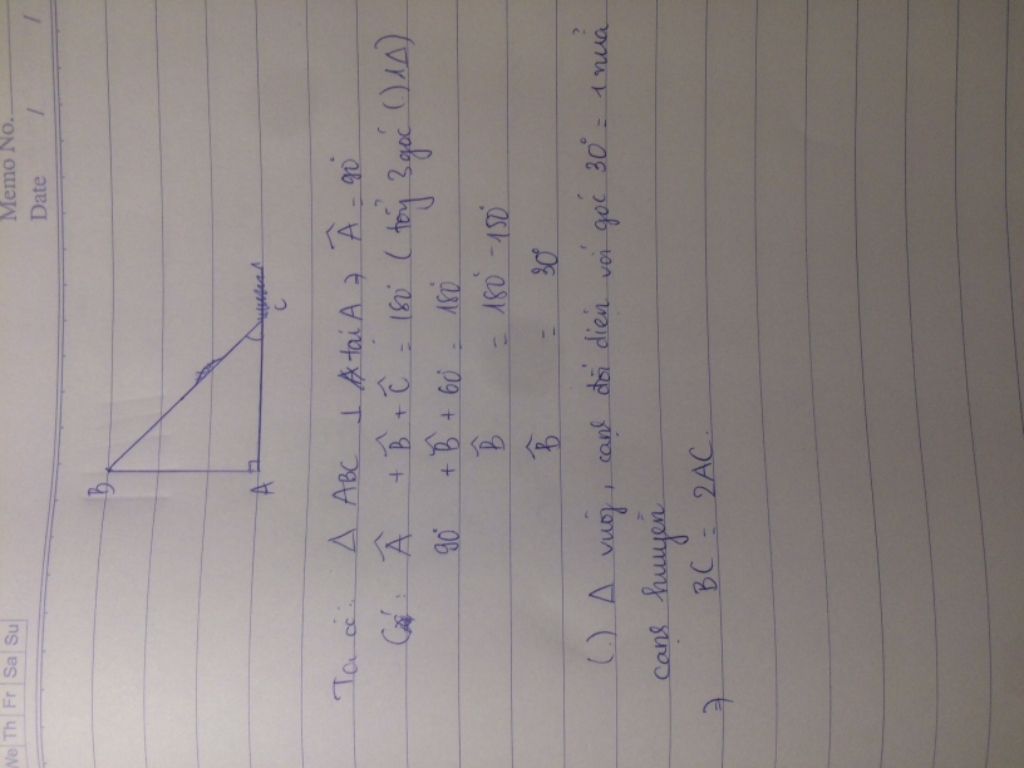 Memo No.
Date / /
We Th Fr Sa Su
B
A
C
Ta có: Δ ABC ⊥ tại A ⇒ Â = 90°
Có: Â + B̂ + Ĉ = 180° (tổg 3 góc () 1 Δ)
90° + B̂ + 60° = 180°
B̂ = 180° - 150°
B̂ = 30°
(.) Δ vuôg, cạnh đối diện với góc 30° = 1 nửa
cạnh huyền
⇒ BC = 2AC.